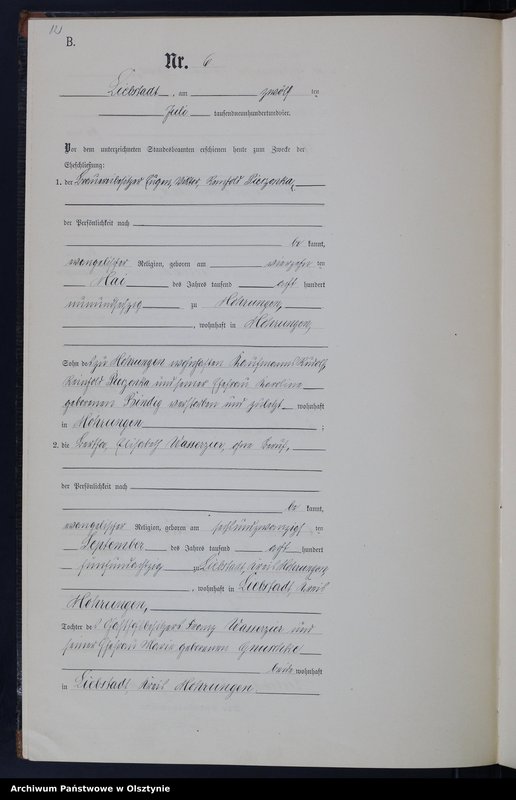 B.
Nr. 6
Liebstadt, am zwölf ten
Juli tausendneunhundertundvier.
Vor dem unterzeichneten Standesbeamten erschienen heute zum Zwecke der
Eheschließung:
1. der Brauereibesitzer Eugen, Reinhold
der Persönlichkeit nach
be kannt,
evangelischer Religion, geboren am ten
Mai des Jahres tausend acht hundert
zu Mohrungen,
, wohnhaft in Mohrungen,
Sohn des zu Mohrungen wohnhaften Kaufmanns Rudolf,
Reinhold und seiner Ehefrau Karoline
geborenen verstorben und zuletzt wohnhaft
in Mohrungen ;
2. die Bertha, Elisabeth Wasserzier, ohne Beruf,
der Persönlichkeit nach
be kannt,
evangelischer Religion, geboren am sechsundzwanzigs ten
September des Jahres tausend acht hundert
fünfundachtzig zu Liebstadt, Kreis Mohrungen
, wohnhaft in Liebstadt, Kreis
Mohrungen,
Tochter des Gasthofbesitzers Franz Wasserzier und
seiner Ehefrau Marie geborenen
beide wohnhaft
in Liebstadt, Kreis Mohrungen
Archiwum Państwowe w Olsztynie